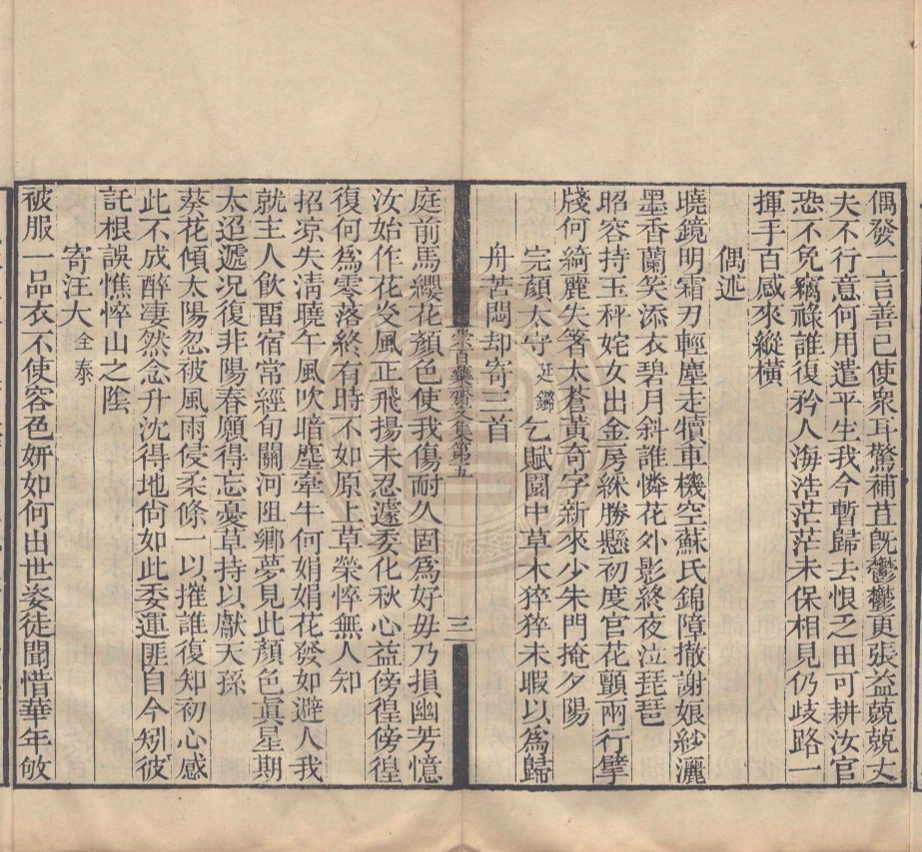 偶發一言善已使衆耳驚補苴旣鬱鬱更張益兢兢丈
夫不行意何用遣平生我今暫歸去恨乏田可耕汝官
恐不免竊祿誰復矜人海浩茫茫未保相見仍歧路一
揮手百感來縱橫
偶述
曉鏡明霜刃輕塵走犢車機空蘇氏錦障撤謝娘紗灑
墨香蘭笑添衣碧月斜誰憐花外影終夜泣琵琶
昭容持玉秤姹女出金房綵勝懸初度官花顫兩行擘
牋何綺麗失箸太蒼黃奇字新來少朱門掩夕陽
完顏太守延鏘乞賦園中草木猝猝未暇以爲歸
舟苦悶却寄三首
宗百藥齋文集第五
三
庭前馬纓花顏色使我傷耐久固爲好毋乃損幽芳憶
汝始作花炎風正飛揚未忍遽委化秋心益傍徨傍徨
復何爲零落終有時不如原上草榮悴無人知
招凉失清曉午風吹暗塵牽牛何娟娟花發如避人我
就主人飲畱宿常經旬關河阻鄉夢見此顏色眞星期
太迢遞况復非陽春願得忘憂草持以獻天孫
葵花傾太陽忽被風雨侵柔條一以摧誰復知初心感
此不成醉凄然念升沈得地尙如此委運匪自今矧彼
託根誤憔悴山之陰
寄汪大全泰
被服一品衣不使容色妍如何出世姿徒聞惜華年敂